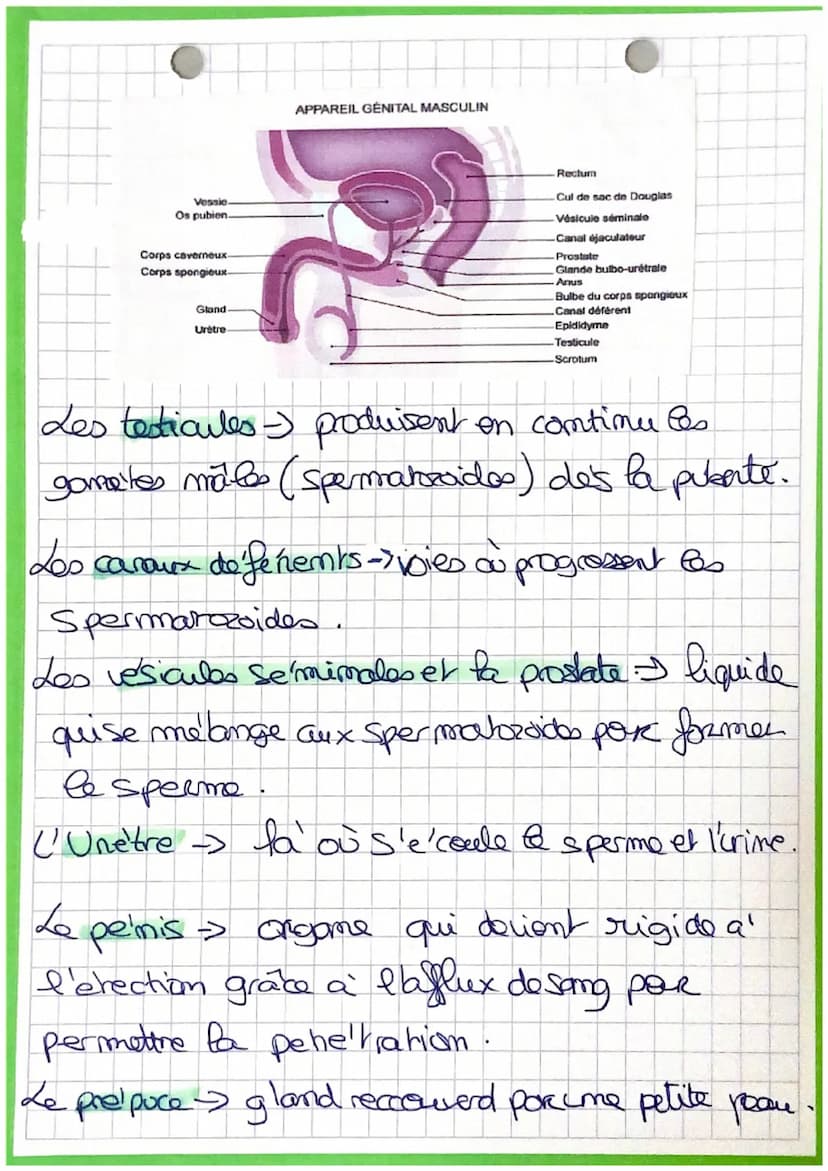 APPAREIL GÉNITAL MASCULIN
Vessie
Os pubien
Corps caverneux
Corps spongieux
Gland
Urètre
Rectum
Cul de sac de Douglas
Vésicule séminale
Canal éjaculateur
Prostate
Glande bulbo-urétrale
Anus
Bulbe du corps spongieux
Canal déférent
Epididyme
Testicule
Scrotum
Les testicules -> produisent en continu les
gamètes mâles (spermatozoides) dès la puberté.
Les canaux déférents -> voies où progressent les
Spermatozoides.
Les vésicules séminales et la prostate -> liquide
qui se mélange aux spermatozoides pour former
le sperme.
L'Urètre -> là où s'écoule le sperme et l'urine.
Le pénis -> organe qui devient rigide à
l'érection grâce à l'afflux de sang pour
permettre la pénétration.
Le prépuce -> gland recouverd par une petite peau.